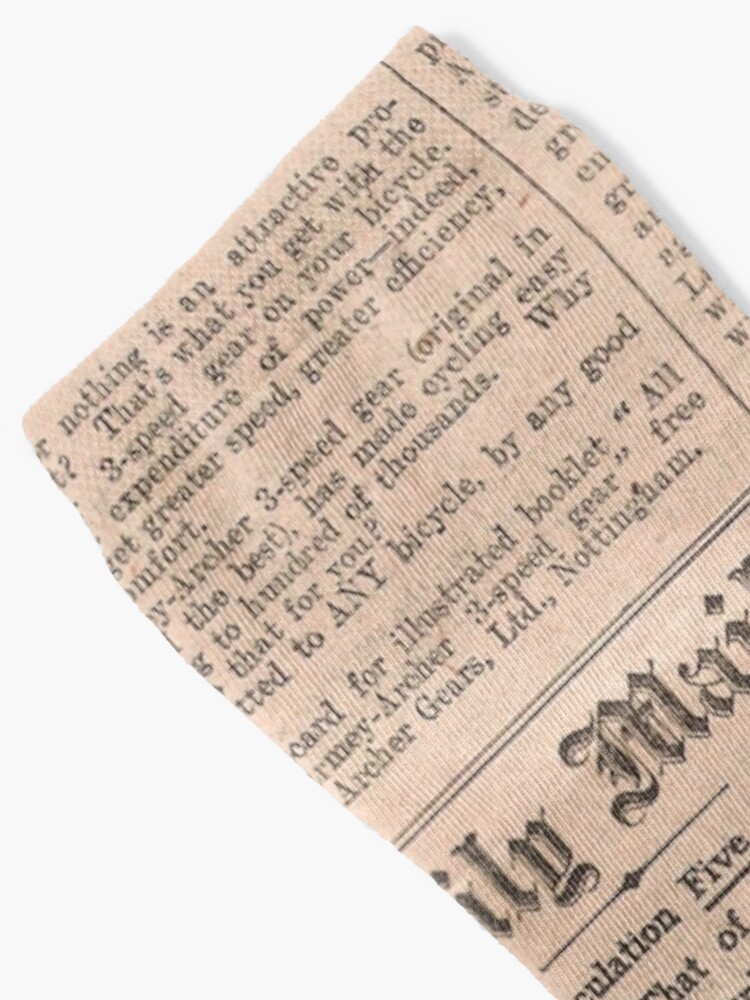 nothing is an attractive pro-
t? That's what you get with the
3-speed gear on your bicycle.
expenditure of power—indeed,
et greater speed, greater efficiency,
mfort.
y-Archer 3-speed gear (original in
the best), has made cycling easy
g to hundred of thousands. Why
that for you?
tted to ANY bicycle, by any good
card for illustrated booklet "All
rmey-Archer 3-speed gear," free
Archer Gears, Ltd., Nottingham.
ily Mai
ulation Five
That of
de
gr
en
gr